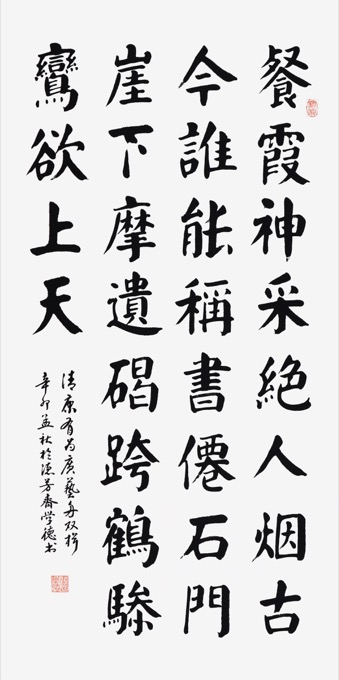 餐霞神采絶人烟古
今誰能稱書僊石門
崖下摩遺碣跨鶴驂
鸞欲上天
清康有为廣藝舟双楫
辛卯孟秋於芳齋学德书